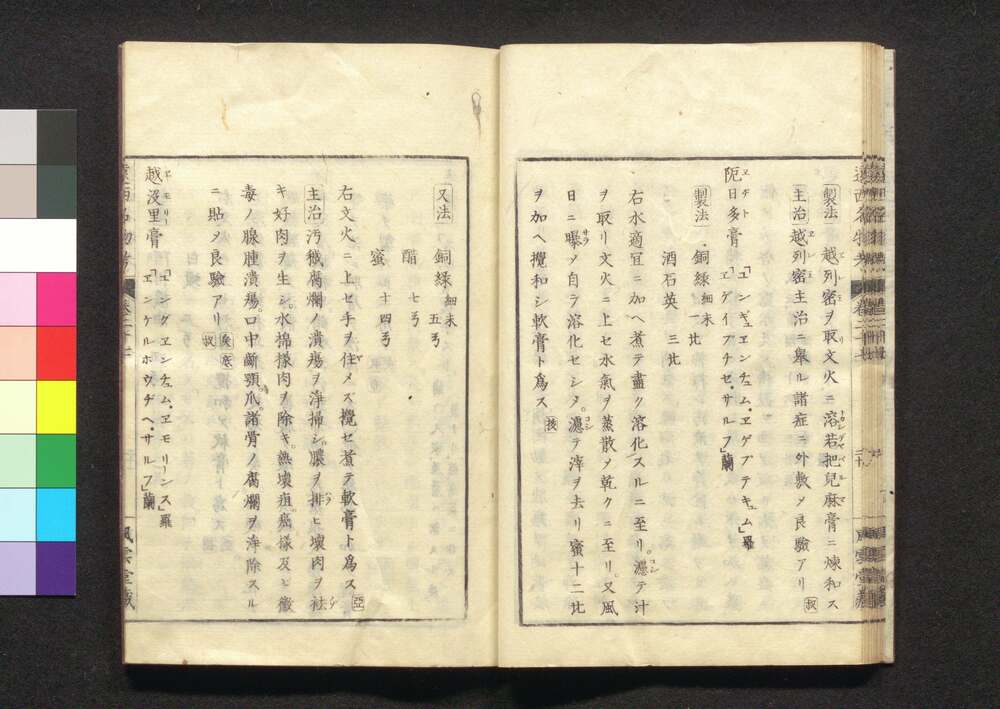 製法 越列密ヲ取文火ニ溶若把兒麻膏ニ煉和ス
主治越列密主治ニ擧ル諸症ニ外敷メ良驗アリ 叔
阨日多膏 「ヱンギュヱンチュム、ヱゲプテキュム」羅
「ヱゲイプチセ、サルフ」蘭
製法 銅緑 細末 一比
酒石英 三比
右水適宜ニ加ヘ煮テ盡ク溶化スルニ至リ。濾テ汁
ヲ取リ文火ニ上セ水氣ヲ蒸散メ乾クニ至リ。又風
日ニ曝メ自ラ溶化セシメ。濾テ滓ヲ去リ蜜十二比
ヲ加ヘ攪和シ軟膏ト爲ス
又法 銅緑 細末 五弓
醋 七弓
蜜 十四弓
右文火ニ上セ手ヲ住メス攪セ煮テ軟膏ト爲ス 亞
主治 汚穢腐爛ノ潰瘍ヲ淨掃シ。膿ヲ排ヒ壞肉ヲ祛
キ好肉ヲ生シ。水棉樣肉ヲ除キ。熱壞疽。癌樣及ヒ黴
毒ノ腺腫潰瘍。口中齗顎爪諸骨ノ腐爛ヲ淨除スル
ニ貼メ良驗アリ
越沒里膏 「ヱングヱンチュム、ヱモリーンス」羅
「ヱンケルホウヂヘ、サルフ」蘭
遠西名物考
風雲堂藏